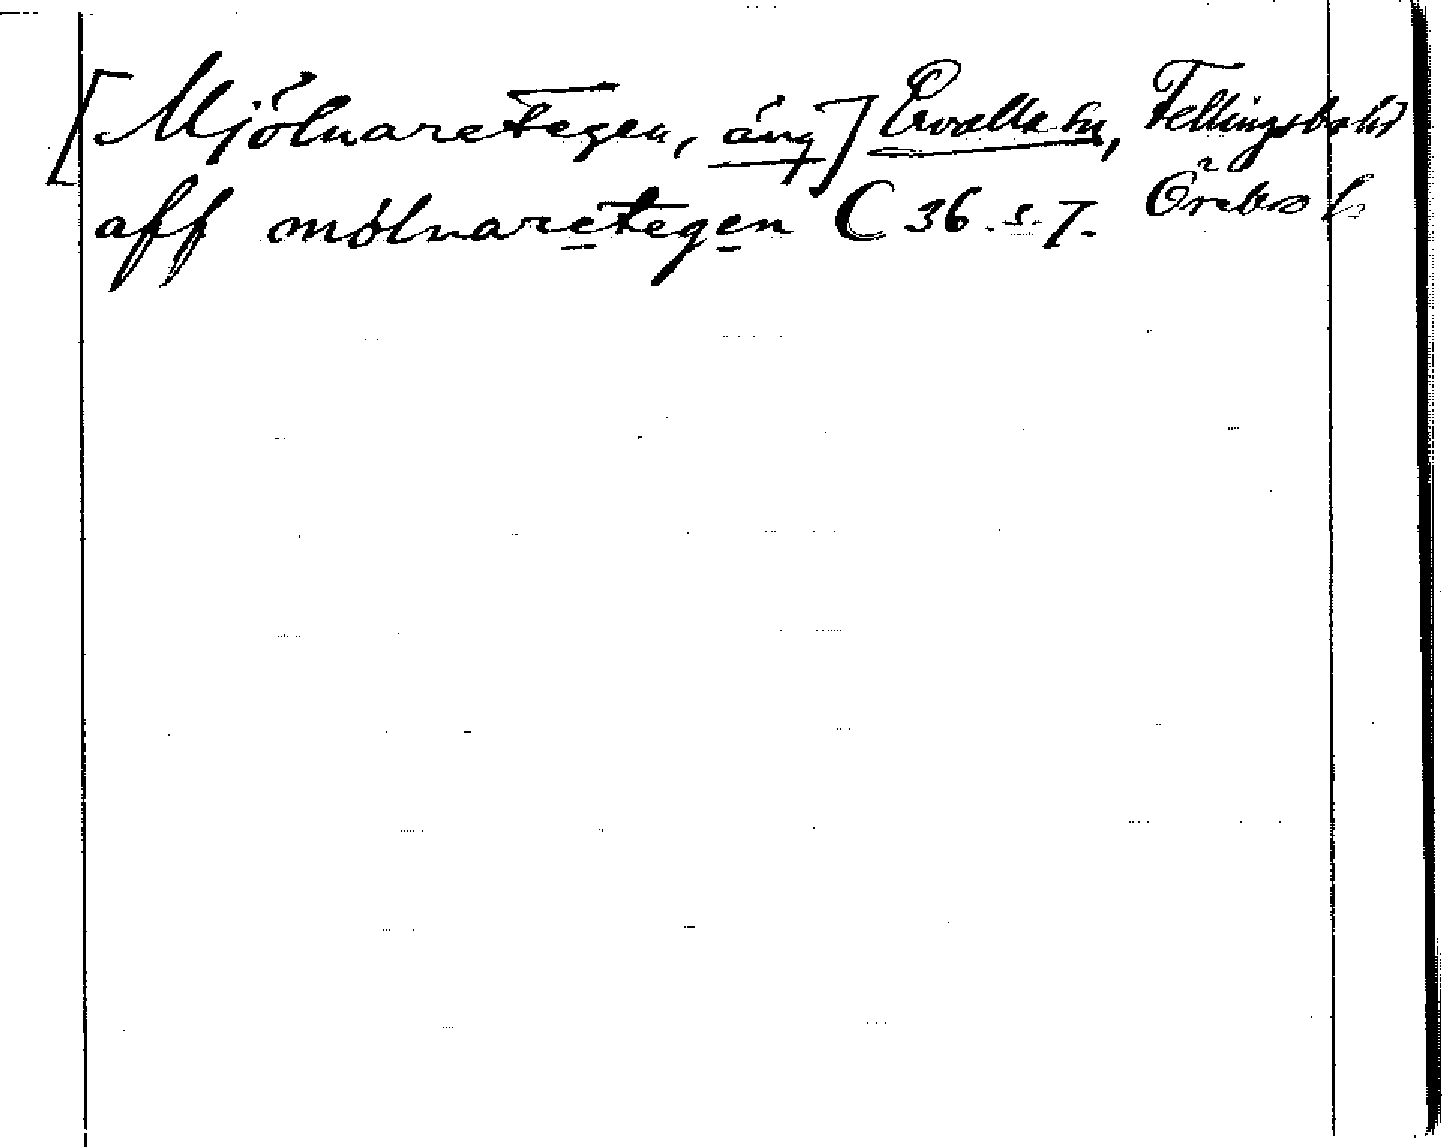 [Mjölnaretegen, äng] Ervalla sn, Fellingsbro hd
aff mólnaretegen C 36. s. 7. Örebro l.